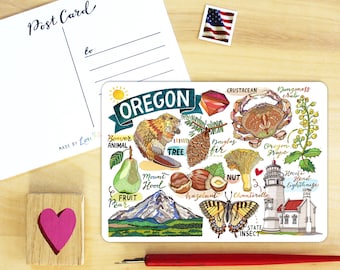 Post Card
to
OREGON
CRUSTACEAN
Dungeness
Crab
Beaver
ANIMAL
TREE
Douglas
Fir
Oregon
Grape
FRUIT
Pear
Mount
Hood
NUT
Hazelnut
Heceta
Head
Lighthouse
STATE
INSECT
MADE BY